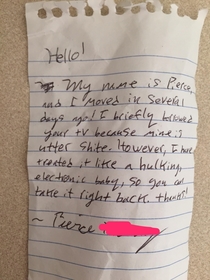 Hello!
My name is Pierce,
and I moved in several
days ago! I briefly borrowed
your TV because mine is
utter shite. However, I have
treated it like a hulking,
electronic baby, so you can
take it right back. thanks!
~ Pierce